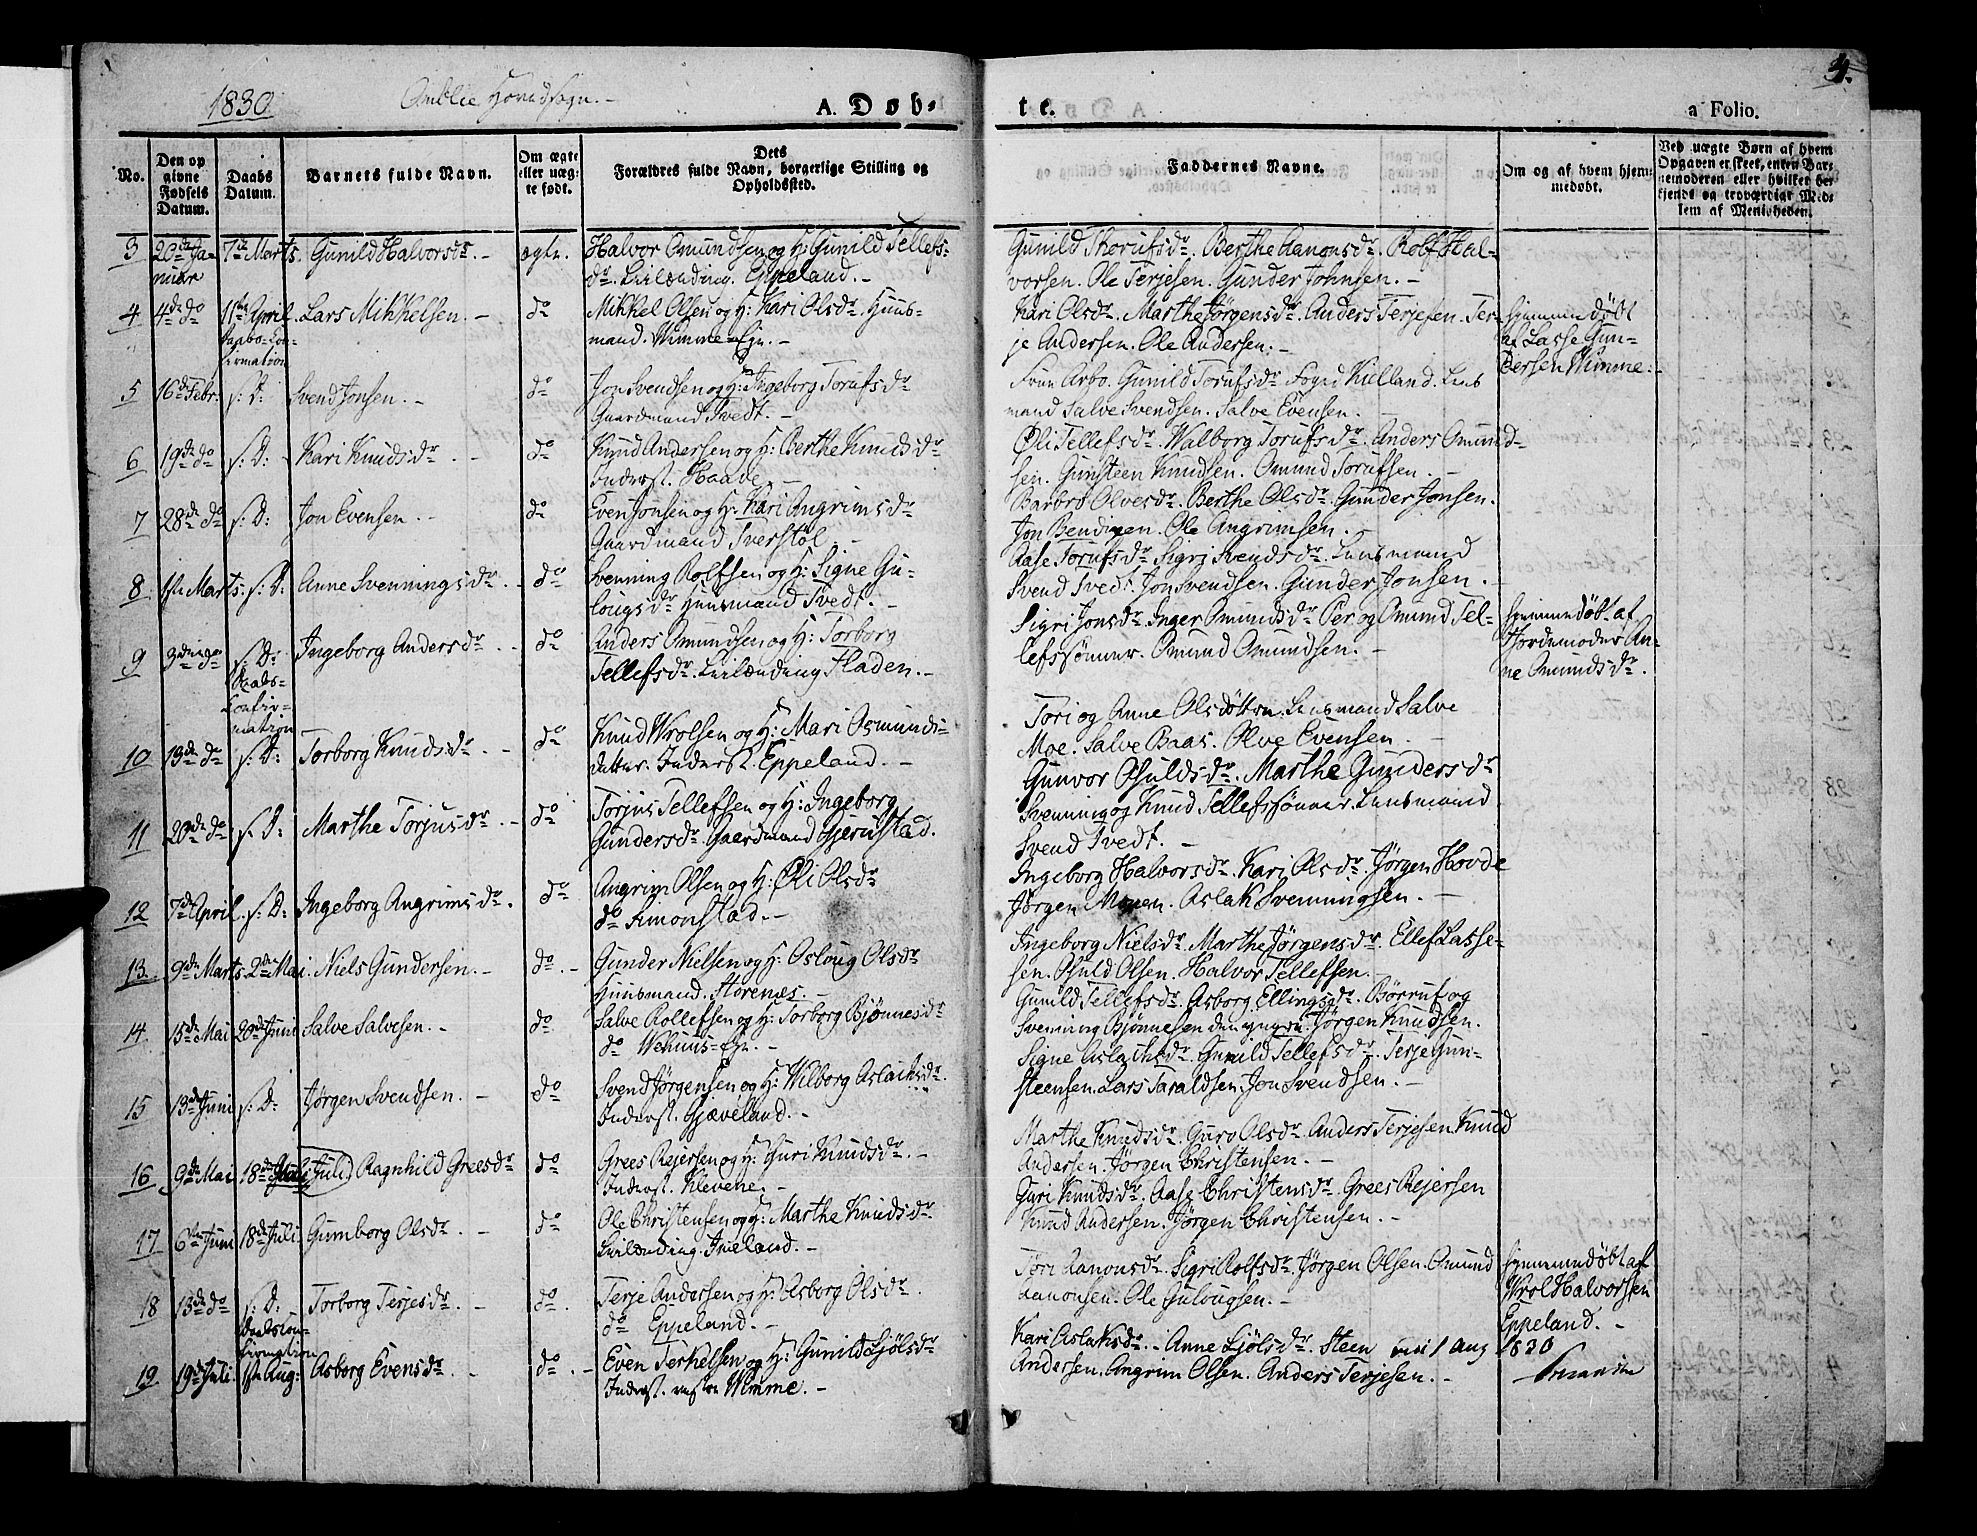 1830. Omblie Hovedsogn.
A. Døb-
te.
a Folio.
4.
No.
Den op
givne
Fødsels
Datum.
Daabs
Datum.
Barnets fulde Navn.
Om ægte
eller uæg-
te født.
Dets
Forældres fulde Navn, borgerlige Stilling og
Opholdssted.
Faddernes Navne.
Om og af hvem hjem-
medøbt.
Ved uægte Børn af hvem
Opgaven er skeet, enten Bar-
nemoderen eller hvilket be-
kjendt og troværdigt Med-
lem af Menigheden.
3 20de Ja- 7de Marts. Gunild Halvorsdr. ægte. Halvor Omundsen og H: Gunild Tellefs-
nuar dr. Leilænding. Eppeland.
Gunild Torufsdr. Berthe Aanonsdr. Rolf Hal-
vorsen. Ole Terjesen. Gunder Johnsen.
4 4de do 11te April. Lars Mikkelsen. do Mikkel Olsen og H: Kari Olsdr. Huus-
Daabs-Con-
firmation
mand. Wimme-Eje.
Kari Olsdr. Marthe Jørgensdr. Anders Terjesen. Ter-
je Andersen. Ole Andersen.
hjemmedöbt
af Lasse Gun-
dersen Wimme.
5 16de Febr. s. D: Svend Jonsen. do Jon Svendsen og H: Ingeborg Torufsdr
Gaardmand Tvedt.
Frue Arbo. Gunild Torufsdr. Foged Kielland. Lens
mand Salve Svendsen. Salve Evensen.
6 19de do s. D: Kari Knudsdr do Knud Andersen og H: Berthe Knudsdr
Inderst. Haave.
Øli Tellefsdr. Walborg Torufsdr. Anders Omund-
sen. Gunsteen Knudsen. Omund Torufsen.
7 28de do s. D: Jon Evensen. do Even Jonsen og H: Kari Angrimsdr
Gaardmand Tverstöl.
Barbro Olvesdr. Berthe Olsdr. Gunder Jonsen.
Jon Bendixen. Ole Angrimsen.
8 1ste Marts. s. D: Anne Svenningsdr. do Svenning Rolfsen og H: Signe Gu-
lougsdr Huusmand Tvedt.
Aase Torufsdr. Sigri Svendsdr. Lensmand
Svend Tvedt. Jon Svendsen. Gunder Jonsen.
9 3die do s. D: Ingeborg Andersdr. do Anders Omundsen og H: Torborg
Daabs-
Confir-
mation
Tellefsdr. Leilænding Fladen.
Sigri Jonsdr. Inger Omundsdr. Per og Omund Tel-
lefssönner. Omund Omundsen.
hjemmedöbt af
Jordemoder An-
ne Omundsdr.
10 13de do s. D: Torborg Knudsdr. do Knud Wrolsen og H: Mari Osmunds-
datter. Inderst. Eppeland.
Tori og Anne Olsdöttre. Lensmand Salve
Moe. Salve Baas. Olve Evensen.
11 20de do s. D: Marthe Torjusdr. do Torjus Tellefsen og H: Ingeborg
Gundersdr. Gaardmand Gjerustad.
Gunvor Osuldsdr. Marthe Gundersdr
Svenning og Knud Tellefssönner. Lensmand
Svend Tvedt.
12 7de April. s. D: Ingeborg Angrimsdr. do Angrim Olsen og H: Øli Olsdr
do Simonstad.
Ingeborg Halvorsdr. Kari Olsdr. Jørgen Hovde
Jørgen Monen. Aslak Svenningsen.
13. 9de Marts. 2den Mai. Niels Gundersen. do. Gunder Nielsen og H: Osloug Olsdr
Huusmand. Storenæs.
Ingeborg Nielsdr. Marthe Jørgensdr. Ellef Lasse-
sen. Osuld Olsen. Halvor Tellefsen.
14 15de Mai 20de Juni Salve Salvesen. do Salve Rollefsen og H: Torborg Bjönnesdr
do Wehuus-Eje.
Gunild Tellefsdr. Asborg Ellingsdr. Börruf og
Svenning Bjönnesen den yngre. Jörgen Knudsen.
15 13de Juni s. D: Jørgen Svendsen. do Svend Jørgensen og H: Wilborg Aslaksdr.
Inderst. Gjæveland.
Signe Aslaksdr. Gunild Tellefsdr. Terje Gun-
steensen. Lars Taraldsen. Jon Svendsen.
16 9de Mai 18de Juli Ragnhild Greesdr do Grees Rejersen og H: Guri Knudsdr.
Inderst. Klevene.
Marthe Knudsdr. Guro Olsdr. Anders Terjesen Knud
Andersen. Jörgen Christensen.
17 6te Juni 18de Juli. Gumborg Olsdr. do Ole Christensen og H: Marthe Knudsdr.
Leilænding. Iveland.
Guri Knudsdr. Aase Christensdr. Grees Rejersen
Knud Andersen. Jörgen Christensen.
18 13de do s. D: Torborg Terjesdr. do. Terje Andersen og H: Asborg Olsdr.
Daabscon-
firmation
do Eppeland.
Töri Aanonsdr. Sigri Rolfsdr. Jörgen Olsen. Omund
Aanonsen. Ole Gulougsen.
hjemmedöbt af
Wrol Halvorsen
Eppeland.
19 19de Juli. 1ste Aug: Asborg Evensdr. do. Even Terkelsen og H: Gunild Ljölsdr
Inderst. Wimme.
Kari Aslaksdr. Anne Ljölsdr. Steen
Andersen. Angrim Olsen. Anders Terjesen.
1 Aug 1830